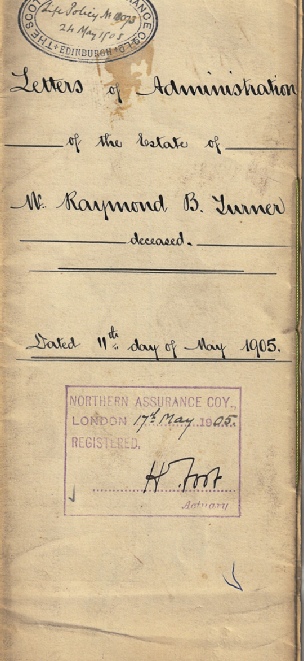 Life Policy No
24 May 1905
THE SCO
ANCE CO LD
EDINBURGH
Letters of Administration
of the Estate of
Mr. Raymond B. Turner
deceased.
Dated 11th day of May 1905.
NORTHERN ASSURANCE COY.,
LONDON 17th May 1905.
REGISTERED,
H Foot
Actuary